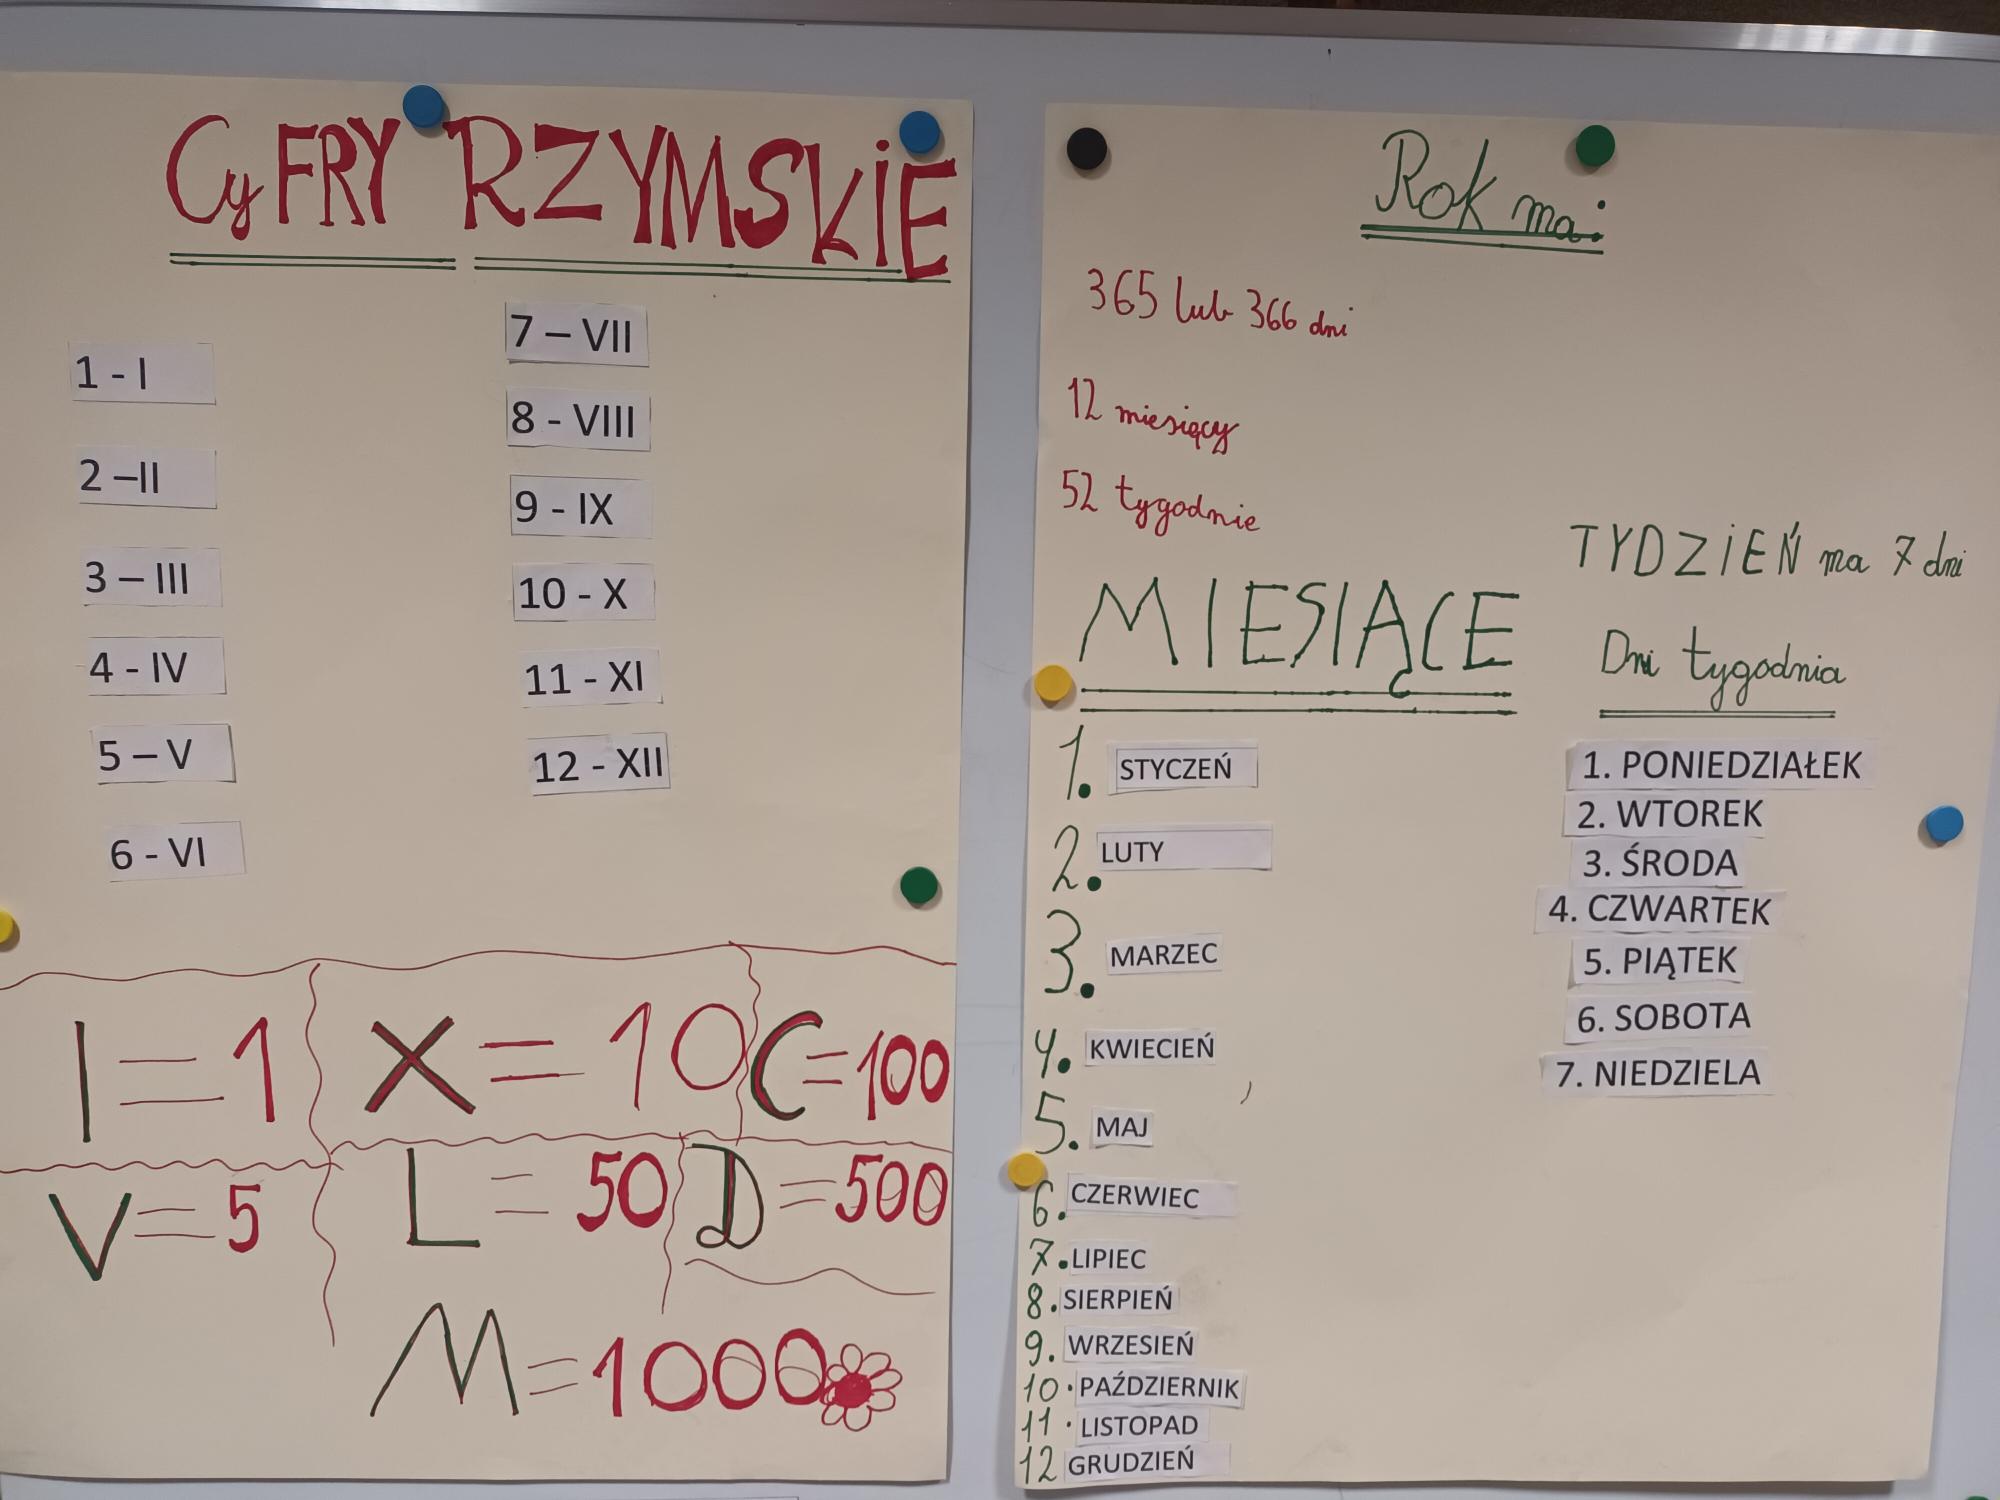 CyFRY RZYMSKiE
1 - I
2 –II
3 – III
4 - IV
5 – V
6 - VI
7 – VII
8 - VIII
9 - IX
10 - X
11 - XI
12 - XII
I = 1
X = 10
C = 100
V = 5
L = 50
D = 500
M = 1000
Rok ma:
365 lub 366 dni
12 miesięcy
52 tygodnie
MIESIĄCE
1. STYCZEŃ
2. LUTY
3. MARZEC
4. KWIECIEŃ
5. MAJ
6. CZERWIEC
7. LIPIEC
8. SIERPIEŃ
9. WRZESIEŃ
10. PAŹDZIERNIK
11. LISTOPAD
12 GRUDZIEŃ
TYDZiEŃ ma 7 dni
Dni tygodnia
1. PONIEDZIAŁEK
2. WTOREK
3. ŚRODA
4. CZWARTEK
5. PIĄTEK
6. SOBOTA
7. NIEDZIELA